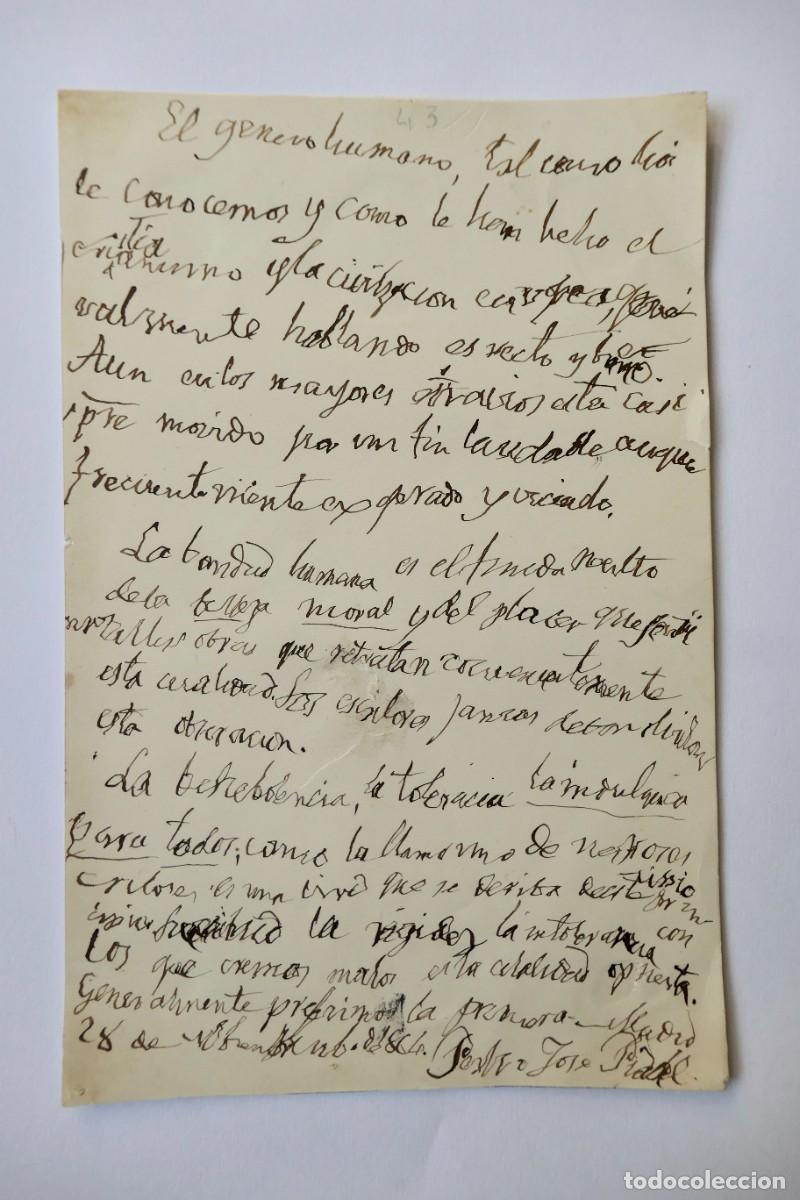 43
El genero humano, tal como hoi
le conocemos y como le han hecho el
cristianismo y la civilizacion europea, gene
ralmente hablando es recto y bueno.
Aun en los mayores estravios esta casi
pre movido por un fin laudable aunque
frecuentemente exagerado y viciado.
La bondad humana es el fundamento
de la belleza moral y del placer que
obras que retratan
esta cualidad. Los escritores jamas deben olvidar
esta observacion.
La benebolencia, la tolerancia la indulgencia
para todos, como la llamo uno de nuestros es
critores es una que se deriba de este
la rigidez la intolerancia con
los que creemos malos es la cualidad opuesta.
Generalmente preferimos la primera - Madrid
28 de
Pedro Jose Pidal
todocoleccion